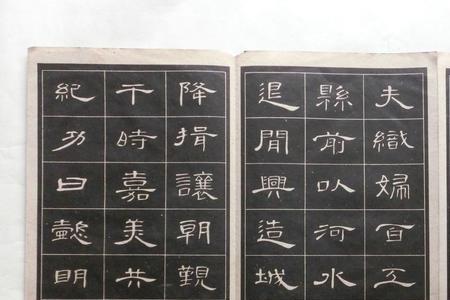 夫織婦百工
縣前以河水
退閒興造城
降揖讓朝覲
干時嘉美共
紀功曰懿明